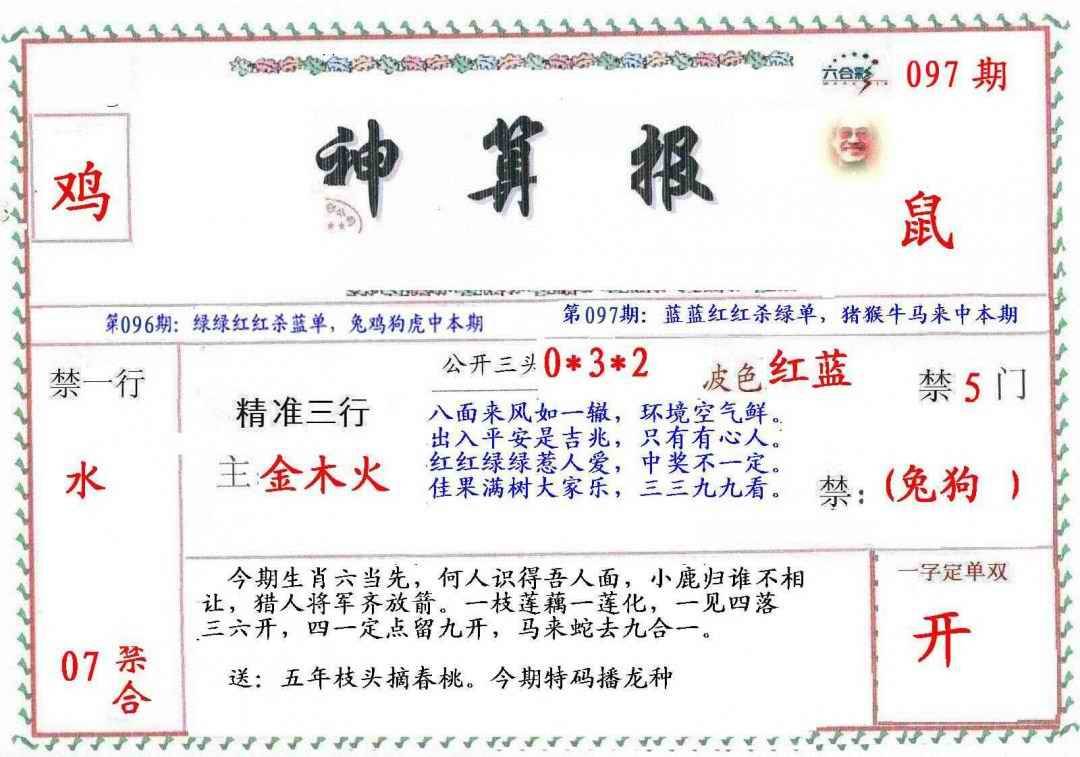 六合彩
097期
神算报
鸡
鼠
第096期：绿绿红红杀蓝单，兔鸡狗虎中本期
第097期：蓝蓝红红杀绿单，猪猴牛马来中本期
禁一行
水
07
禁合
精准三行
主:金木火
公开三头0*3*2
波色红蓝
八面来风如一辙，环境空气鲜。
出入平安是吉兆，只有有心人。
红红绿绿惹人爱，中奖不一定。
佳果满树大家乐，三三九九看。
禁5门
禁：(兔狗 )
今期生肖六当先，何人识得吾人面，小鹿归谁不相
让，猎人将军齐放箭。一枝莲藕一莲化，一见四落
三六开，四一定点留九开，马来蛇去九合一。
送：五年枝头摘春桃。今期特码播龙种
一字定单双
开